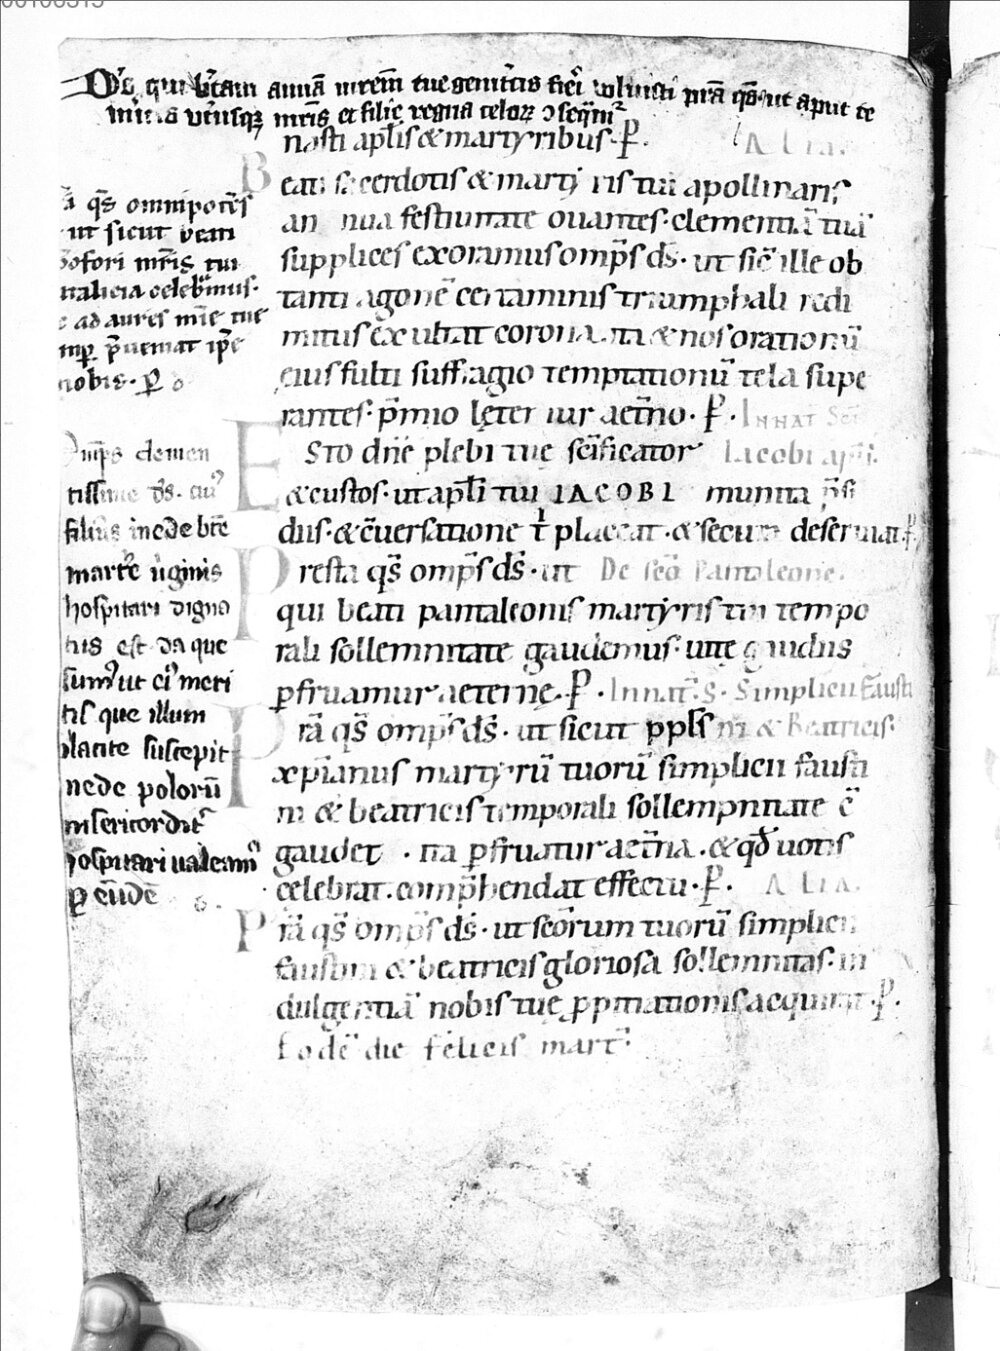 00108515
Ds̄ qui b̄tam annā mrēm tue genitͥcis fiēi voluisti p̄stā qs̄ ut aput te
mͥtis utͥusqꝫ mrīs et filię regna celoꝝ ↄseq̄mͬ
nasti apl̄is & martyribus· P̲. ALIA.
Beati sacerdotis & martyris tui apollinaris
annua festiuitate ouantes· clementiā tuā
supplices exoramus omp̄s ds̄· ut sic̄ ille ob
tanti agonē certaminis triumphali redi
mitus exultat corona. ita & nos orationū
eius fulti suffragio temptationū tela supe
rantes· p̄mio lęter iur aet̄no· P̲· IN NAT Sc̄i
ESto dn̄e plebi tue sc̄ificator Iacobi apl̄i.
& custos· ut apl̄i tui IACOBI munita p̄si
diis· & c̄uersatione t̄ placeat· & secura deseruiat· P̲
Presta qs̄ omp̄s ds̄· ut De sc̄o Pantaleone.
qui beati pantaleonis martyris tui tempo
rali sollemnitate gaudemus· uite gaudiis
ꝑfruamur aeternę. P̲· In nat̄· S· Simplicii Fausti
Prā qs̄ omp̄s ds̄· ut sicut ppls̄ ni & Beatricis·
xp̄ianus martyrū tuorū simplicii fausti
ni & beatricis temporali sollempnitate c̄
gaudet · ita ꝑfruatur aet̄na· & qd̄ uotis
celebrat· comp̄hendat effectu· P̲. ALIA.
Pr̄ā qs̄ omp̄s ds̄· ut scōrum tuorū simplicii
faustini & beatricis gloriosa sollemnitas· in
dulgentiā nobis tuę ꝓpitiationis acquirat· P̲.
Eodē die felicis mart̄·
qs̄ omnipotēs
ut sicut beati
ofori mr̄is tui
natalicia celebͣmus·
ad aures mīe tue
p̄ueniat ip̄e
nobis· ꝑ
Omp̄s clemen
tissime ds̄· cuiꝰ
filius in ede btē
marthe uͥginis
hospitari digna
tus est· da que
sumꝰ ut eiꝰ meri
tis que illum
placite suscepit
in ede polorū
misericordit̄
hospitari ualeamꝰ
ꝑ eūdē